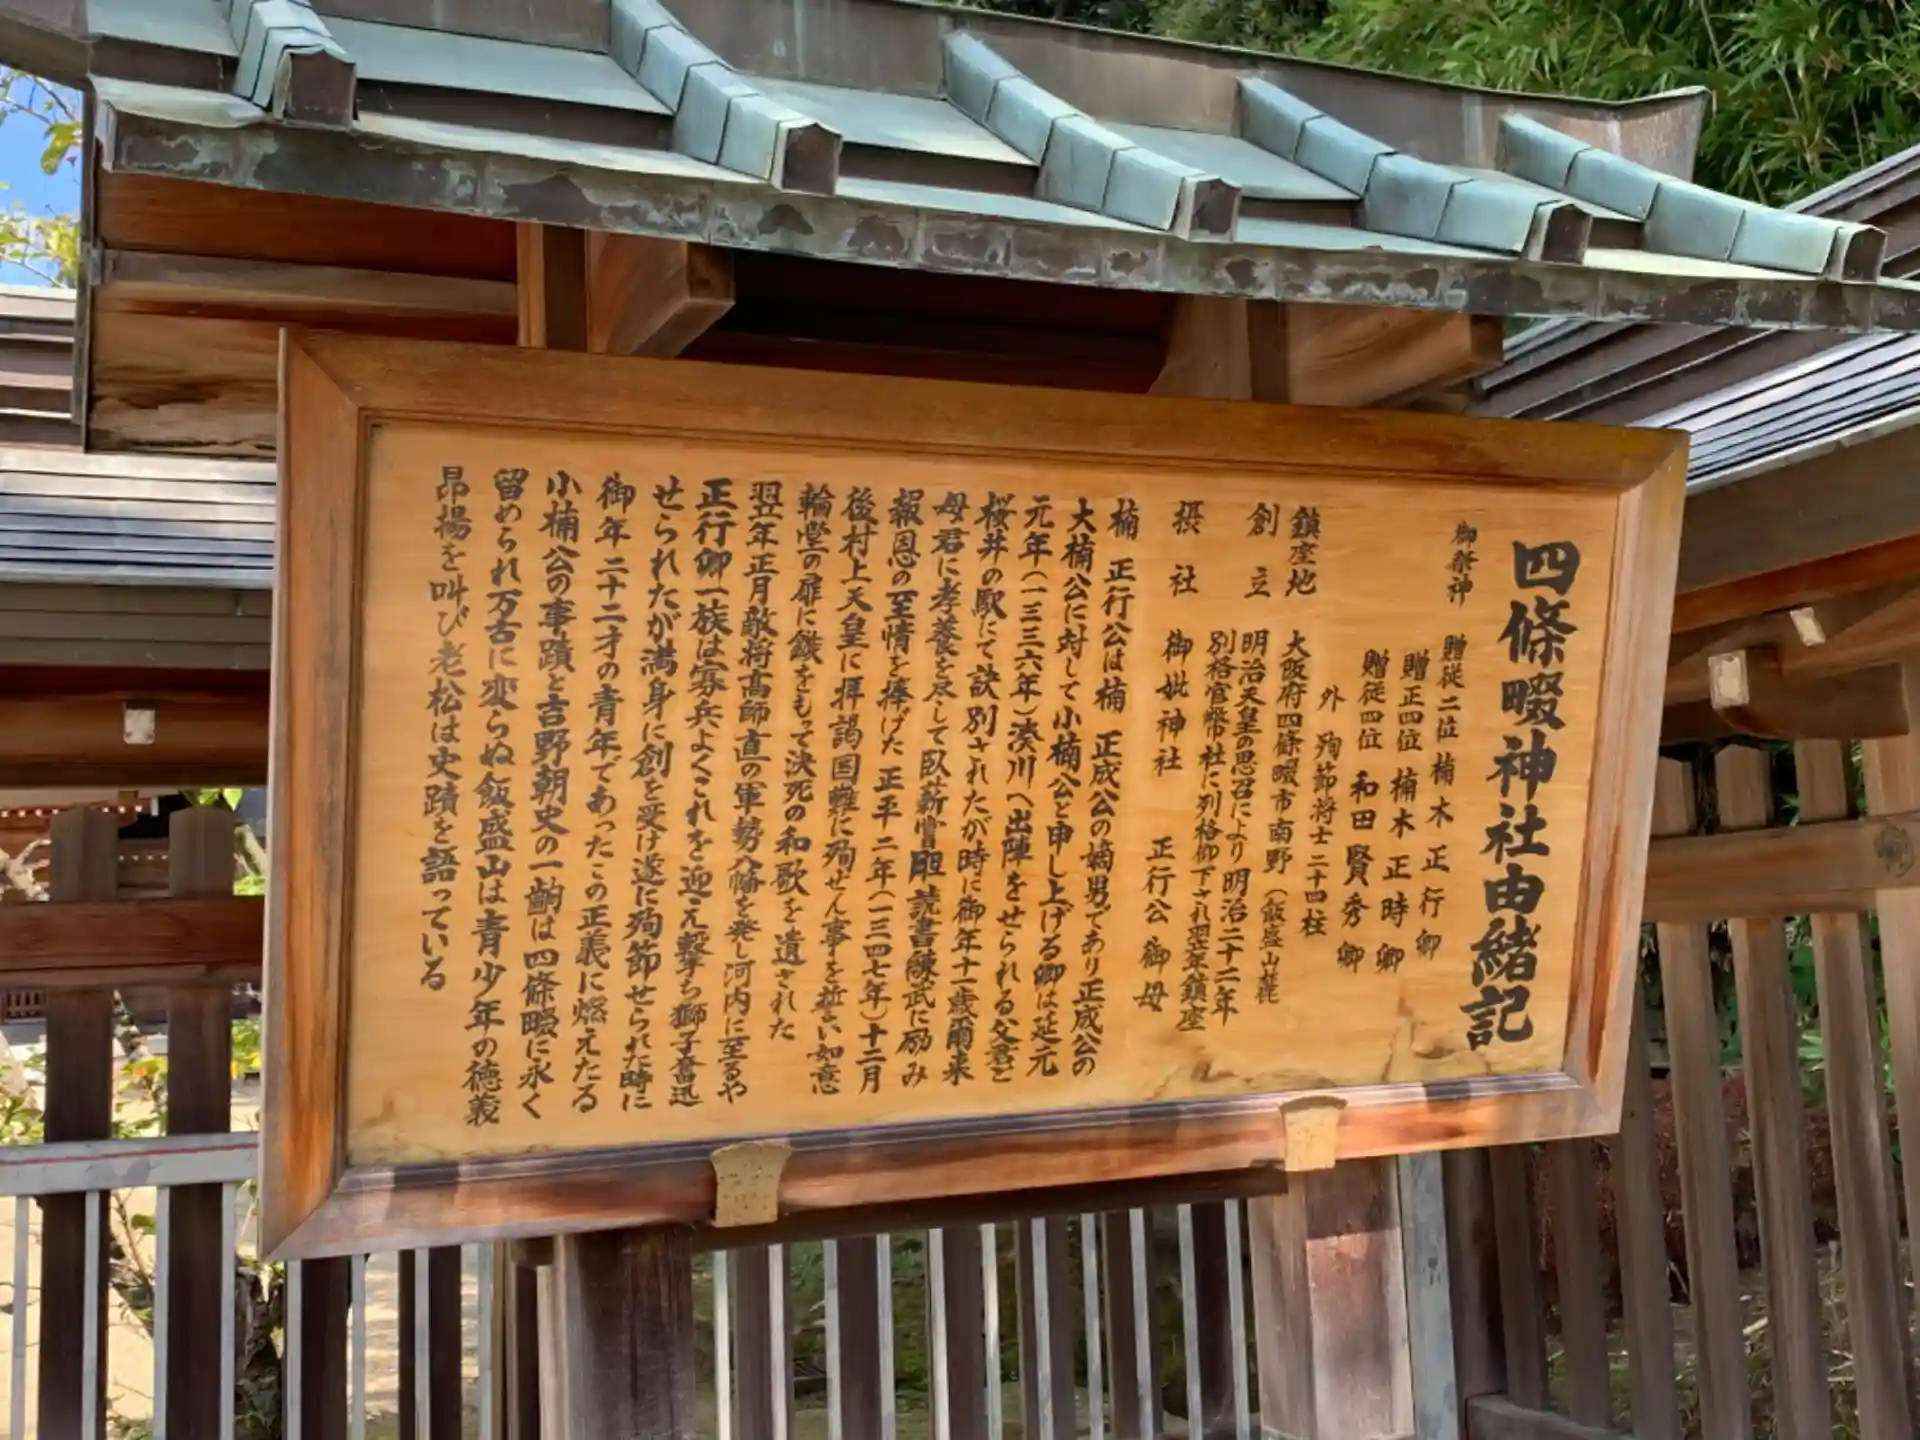 四條畷神社由緒記
御祭神 贈従二位 楠木正行卿
贈正四位 楠木正時卿
贈従四位 和田賢秀卿
外 殉節将士二十四柱
鎮座地 大阪府四條畷市南野(飯盛山麓
創立 明治天皇の思召により明治二十二年
別格官幣社に列格御下され翌年鎮座
摂社 御妣神社 正行公御母
楠 正行公は楠 正成公の嫡男であり正成公の
大楠公に対して小楠公と申し上げる卿は延元
元年(一三三六年)湊川へ出陣をせられる父君と
桜井の駅にて訣別されたが時に御年十一歳爾来
母君に孝養を尽して臥薪嘗胆読書練武に励み
報恩の至情を捧げた正平二年(一三四七年)十二月
後村上天皇に拝謁国難に殉ぜん事を誓い如意
輪堂の扉に鏃をもって決死の和歌を遺された
翌年正月敵将高師直の軍勢八幡を発し河内に至るや
正行卿一族は寡兵よくこれを迎え撃ち獅子奮迅
せられたが満身に創を受け遂に殉節せられた時に
御年二十二才の青年であったこの正義に燃えたる
小楠公の事蹟と吉野朝史の一齣は四條畷に永く
留められ万古に変らぬ飯盛山は青少年の徳義
昂揚を叫び老松は史蹟を語っている